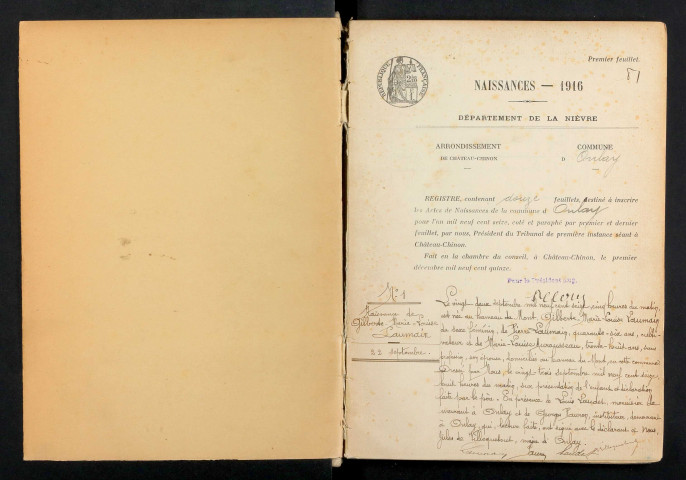 Premier feuillet
81
RÉPUBLIQUE FRANÇAISE
NAISSANCES — 1916
DÉPARTEMENT DE LA NIÈVRE
ARRONDISSEMENT
DE CHATEAU-CHINON
COMMUNE
D Onlay
REGISTRE, contenant douze feuillets, destiné à inscrire
les Actes de Naissances de la commune d Onlay
pour l'an mil neuf cent seize, coté et paraphé par premier et dernier
feuillet, par nous, Président du Tribunal de première Instance séant à
Château-Chinon.
Fait en la chambre du conseil, à Château-Chinon, le premier
décembre mil neuf cent quinze.
Pour le Président emp.
N° 1
Naissance de
Gilberte Marie-Louise
Laumain
22 septembre
Le vingt deux septembre mil neuf cent seize, cinq heures du matin,
est née au hameau de Gilberte Marie-Louise Laumain
du sexe féminin, de Pierre Laumain, quarante-six ans,
et de Marie-Louise trente-huit ans, sans
profession, son épouse, domiciliés au hameau de en cette commune
Dressé par Nous, le vingt-trois septembre mil neuf cent seize
huit heures du matin, sur présentation de l'enfant et déclaration
faite par le père. En présence de Louis Laudet,
demeurant à Onlay et de Georges instituteur, demeurant
à Onlay, qui, lecture faite, ont signé avec le déclarant et Nous
Jules de Villequetout, maire d'Onlay.